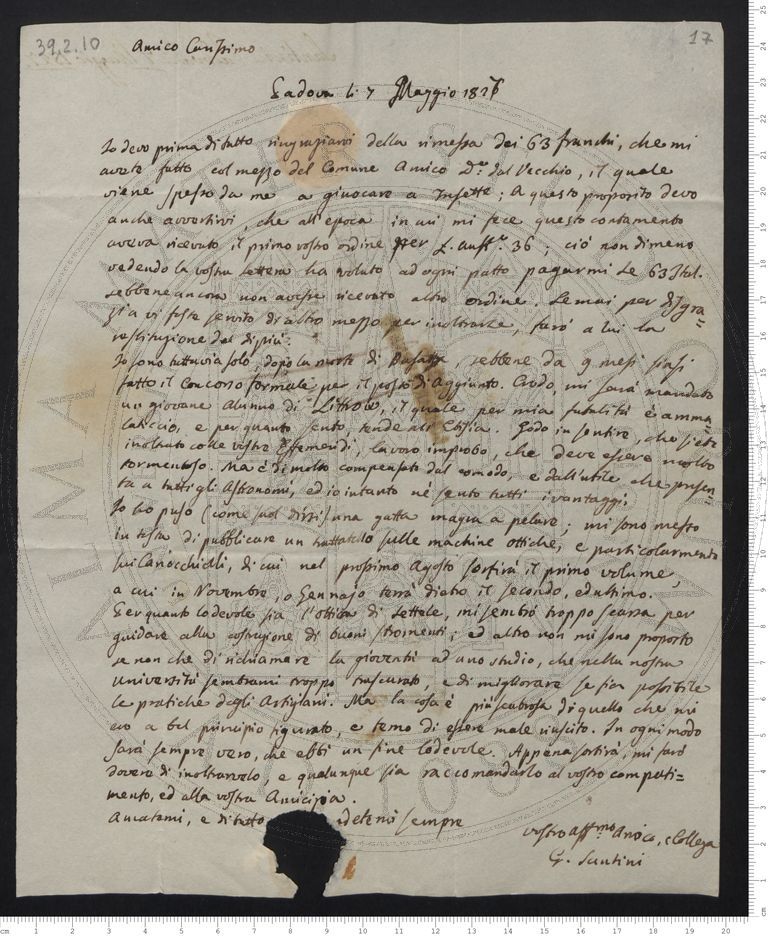 39.2.10
17
Amico Carissimo
Padova li 7 Maggio 1827
Io devo prima di tutto ringraziarvi della rimessa dei 63 franchi, che mi
avete fatto col mezzo del Comune Amico Dr. dal Vecchio, il quale
viene spesso da me a giuocare a Tresette; A questo proposito devo
anche avvertirvi, che all'epoca in cui mi fece questo contamento
aveva ricevuto il primo vostro ordine per L. austr. 36; ciò non dimeno
vedendo la vostra lettera ha voluto ad ogni patto pagarmi le 63 Ital.
sebbene ancora non avesse ricevuto altro ordine. Se mai per disgra=
zia vi foste servito di altro mezzo per inoltrarle, farò a lui la
restituzione del di più.
Io sono tuttavia solo, dopo la morte di sebbene da 9 mesi siasi
fatto il Concorso formale per il posto di Aggiunto. Credo, mi sarà mandato
un giovane Alunno di Littrow, il quale per mia fatalità è amma=
laticcio, e per quanto sento, tende all'Etisia. Godo in sentire, che siete
inoltrato colle vostre Effemeridi, lavoro improbo, che deve essere molto
tormentoso. Ma è di molto compensato dal comodo, e dall'utile che presen=
ta a tutti gli Astronomi, ed io intanto ne sento tutti i vantaggi.
Io ho preso (come suol dirsi) una gatta magra a pelare; mi sono messo
in testa di pubblicare un trattatello sulle machine ottiche, e particolarmente
sui Canocchiali, di cui nel prossimo Agosto sortirà il primo volume,
a cui in Novembre, o Gennajo terrà dietro il secondo, ed ultimo.
Per quanto lodevole sia l'ottica di Settele, mi sembrò troppo scarsa per
guidare alla costruzione di buoni stromenti; ed altro non mi sono proposto
se non che di richiamare la gioventù ad uno studio, che nella nostra
Università sembrami troppo trascurato, e di migliorare se sia possibile
le pratiche degli Artigiani. Ma la cosa è più scabrosa di quello che mi
ero a bel principio figurato, e temo di essere male riuscito. In ogni modo
sarà sempre vero, che ebbi un fine lodevole. Appena sortirà, mi farò
dovere di inoltrarvelo, e qualunque sia raccomandarlo al vostro compati=
mento, ed alla vostra Amicizia.
Amatemi, e di tutto sempre
vostro affmo Amico, e Collega
G. Santini